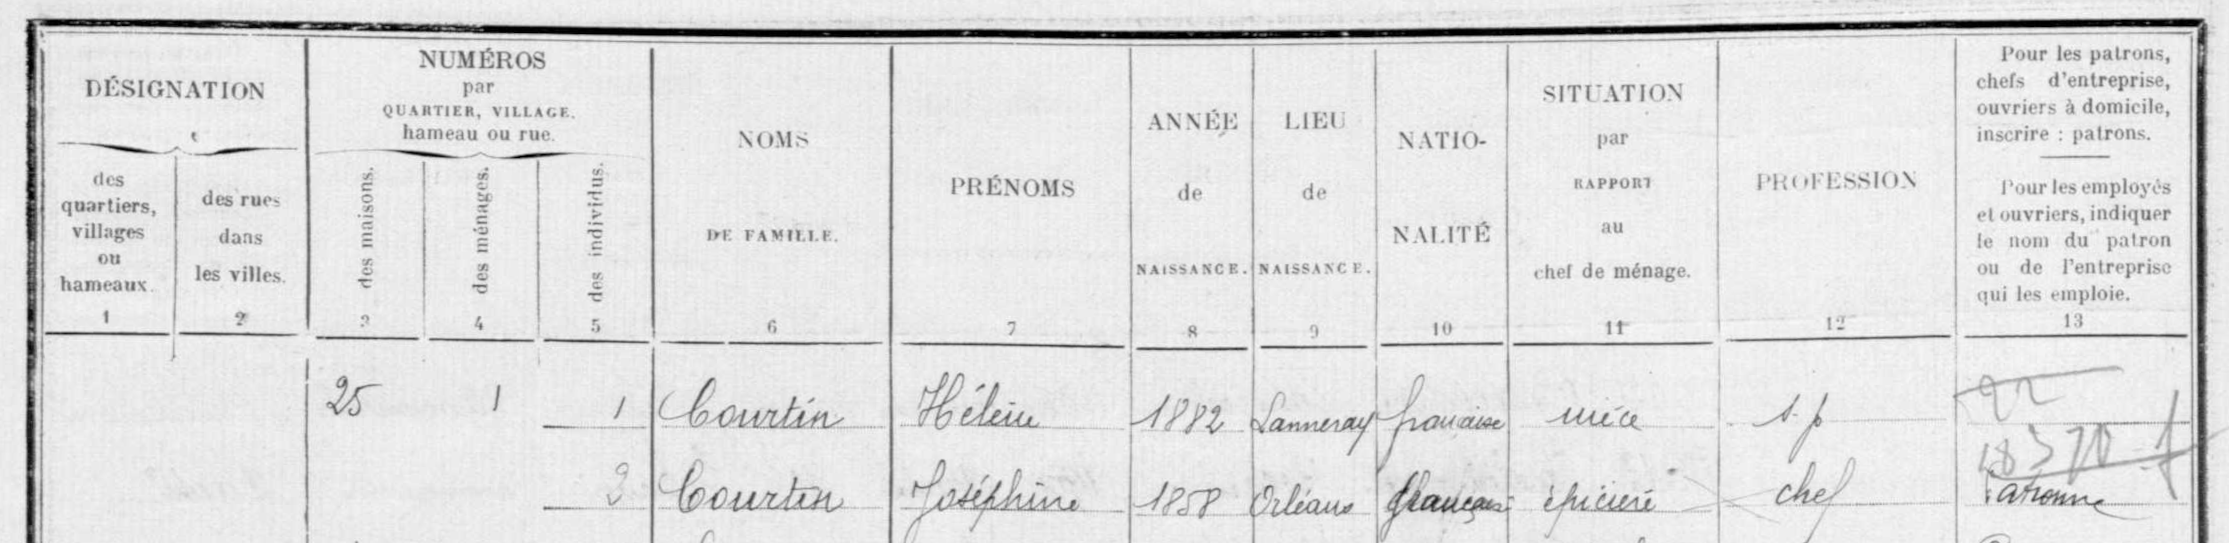 DÉSIGNATION
des
quartiers,
villages
ou
hameaux.
1
des rues
dans
les villes.
2
NUMÉROS
par
QUARTIER, VILLAGE,
hameau ou rue.
des maisons.
3
des ménages.
4
des individus.
5
NOMS
DE FAMILLE.
6
PRÉNOMS
7
ANNÉE
de
NAISSANCE.
8
LIEU
de
NAISSANCE.
9
NATIO-
NALITÉ
10
SITUATION
par
RAPPORT
au
chef de ménage.
11
PROFESSION
12
Pour les patrons,
chefs d'entreprise,
ouvriers à domicile,
inscrire : patrons.
Pour les employés
et ouvriers, indiquer
le nom du patron
ou de l'entreprise
qui les emploie.
13
25 1 1 Courtin Hélène 1882 Lanneray française nièce s.p 22
3 Courtin Joséphine 1858 Orléans épicière chef